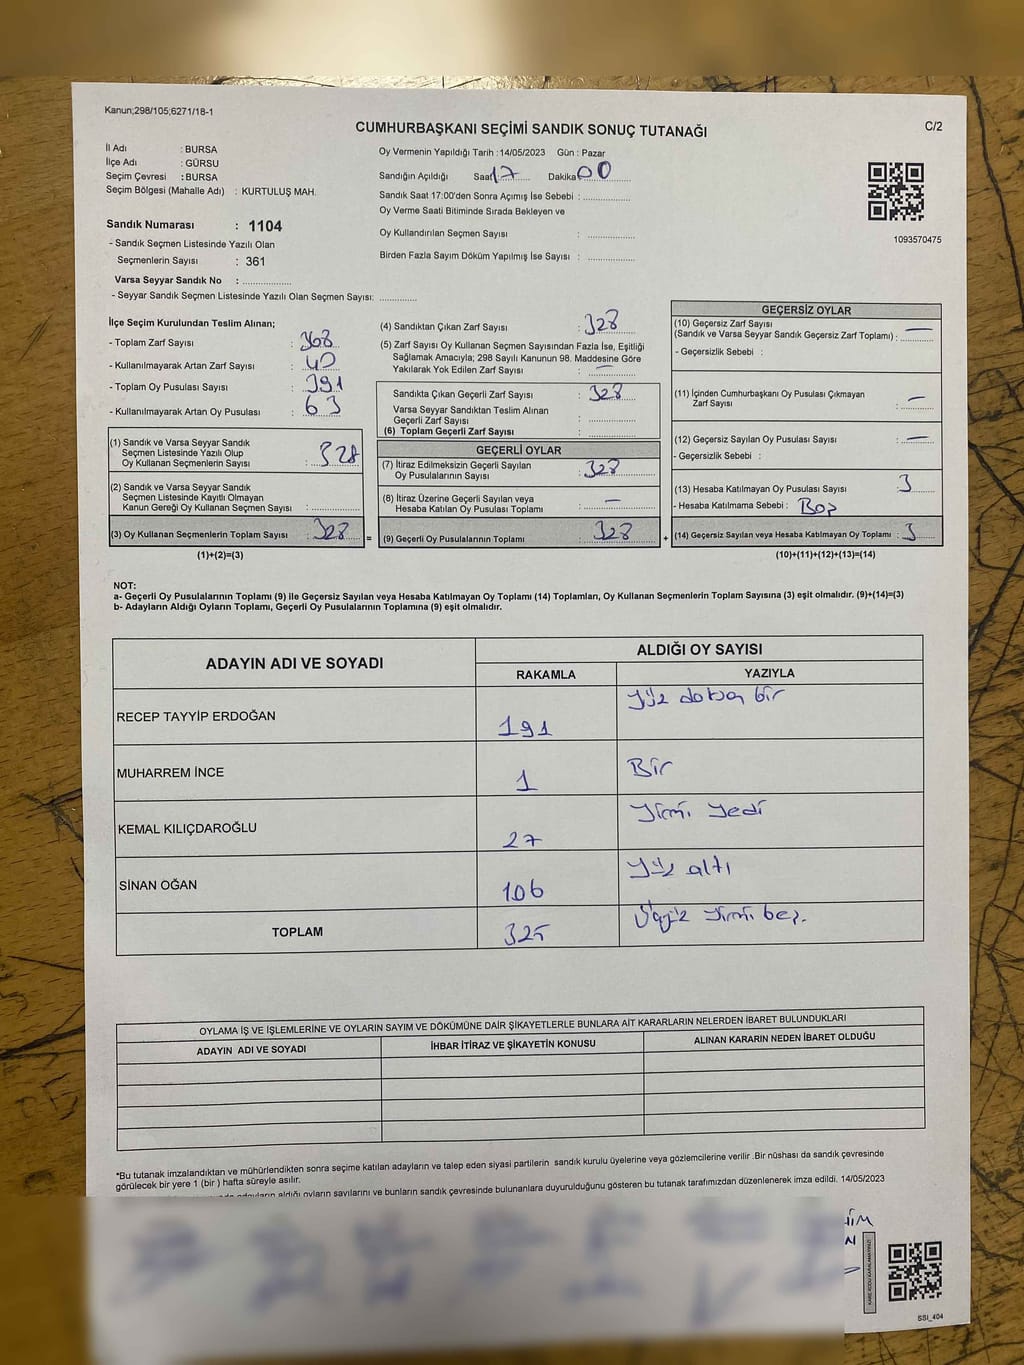 Kanun;298/105;6271/18-1
CUMHURBAŞKANI SEÇİMİ SANDIK SONUÇ TUTANAĞI
C/2
İl Adı : BURSA
İlçe Adı : GÜRSU
Seçim Çevresi : BURSA
Seçim Bölgesi (Mahalle Adı) : KURTULUŞ MAH.
Sandık Numarası : 1104
- Sandık Seçmen Listesinde Yazılı Olan
Seçmenlerin Sayısı : 361
Varsa Seyyar Sandık No : ..................
- Seyyar Sandık Seçmen Listesinde Yazılı Olan Seçmen Sayısı: ..............
Oy Vermenin Yapıldığı Tarih : 14/05/2023 Gün : Pazar
Sandığın Açıldığı Saat 17 Dakika 00
Sandık Saat 17:00'den Sonra Açımış İse Sebebi : ..................
Oy Verme Saati Bitiminde Sırada Bekleyen ve
Oy Kullandırılan Seçmen Sayısı : ..................
Birden Fazla Sayım Döküm Yapılmış İse Sayısı : ..................
1093570475
İlçe Seçim Kurulundan Teslim Alınan;
- Toplam Zarf Sayısı : 368
- Kullanılmayarak Artan Zarf Sayısı : 40
- Toplam Oy Pusulası Sayısı : 391
- Kullanılmayarak Artan Oy Pusulası : 63
(1) Sandık ve Varsa Seyyar Sandık
Seçmen Listesinde Yazılı Olup
Oy Kullanan Seçmenlerin Sayısı : 328
(2) Sandık ve Varsa Seyyar Sandık
Seçmen Listesinde Kayıtlı Olmayan
Kanun Gereği Oy Kullanan Seçmen Sayısı : ..................
(3) Oy Kullanan Seçmenlerin Toplam Sayısı : 328
(1)+(2)=(3)
=
(4) Sandıktan Çıkan Zarf Sayısı : 328
(5) Zarf Sayısı Oy Kullanan Seçmen Sayısından Fazla İse, Eşitliği
Sağlamak Amacıyla; 298 Sayılı Kanunun 98. Maddesine Göre
Yakılarak Yok Edilen Zarf Sayısı : —
Sandıkta Çıkan Geçerli Zarf Sayısı : 328
Varsa Seyyar Sandıktan Teslim Alınan
Geçerli Zarf Sayısı : ..................
(6) Toplam Geçerli Zarf Sayısı : ..................
GEÇERLİ OYLAR
(7) İtiraz Edilmeksizin Geçerli Sayılan
Oy Pusulalarının Sayısı : 328
(8) İtiraz Üzerine Geçerli Sayılan veya
Hesaba Katılan Oy Pusulası Toplamı : —
(9) Geçerli Oy Pusulalarının Toplamı : 328
+
GEÇERSİZ OYLAR
(10) Geçersiz Zarf Sayısı
(Sandık ve Varsa Seyyar Sandık Geçersiz Zarf Toplamı) : —
- Geçersizlik Sebebi :
(11) İçinden Cumhurbaşkanı Oy Pusulası Çıkmayan
Zarf Sayısı : —
(12) Geçersiz Sayılan Oy Pusulası Sayısı : —
- Geçersizlik Sebebi :
(13) Hesaba Katılmayan Oy Pusulası Sayısı : 3
- Hesaba Katılmama Sebebi : Boş
(14) Geçersiz Sayılan veya Hesaba Katılmayan Oy Toplamı : 3
(10)+(11)+(12)+(13)=(14)
NOT:
a- Geçerli Oy Pusulalarının Toplamı (9) ile Geçersiz Sayılan veya Hesaba Katılmayan Oy Toplamı (14) Toplamları, Oy Kullanan Seçmenlerin Toplam Sayısına (3) eşit olmalıdır. (9)+(14)=(3)
b- Adayların Aldığı Oyların Toplamı, Geçerli Oy Pusulalarının Toplamına (9) eşit olmalıdır.
ADAYIN ADI VE SOYADI
ALDIĞI OY SAYISI
RAKAMLA YAZIYLA
RECEP TAYYİP ERDOĞAN 191 Yüz doksan bir
MUHARREM İNCE 1 Bir
KEMAL KILIÇDAROĞLU 27 Yirmi Yedi
SİNAN OĞAN 106 Yüz altı
TOPLAM 325 Üçyüz Yirmi beş.
OYLAMA İŞ VE İŞLEMLERİNE VE OYLARIN SAYIM VE DÖKÜMÜNE DAİR ŞİKAYETLERLE BUNLARA AİT KARARLARIN NELERDEN İBARET BULUNDUKLARI
ADAYIN ADI VE SOYADI İHBAR İTİRAZ VE ŞİKAYETİN KONUSU ALINAN KARARIN NEDEN İBARET OLDUĞU
*Bu tutanak imzalandıktan ve mühürlendikten sonra seçime katılan adayların ve talep eden siyasi partilerin sandık kurulu üyelerine veya gözlemcilerine verilir .Bir nüshası da sandık çevresinde
görülecek bir yere 1 (bir ) hafta süreyle asılır.
adayların aldığı oyların sayılarını ve bunların sandık çevresinde bulunanlara duyurulduğunu gösteren bu tutanak tarafımızdan düzenlenerek imza edildi. 14/05/2023
SSI_404